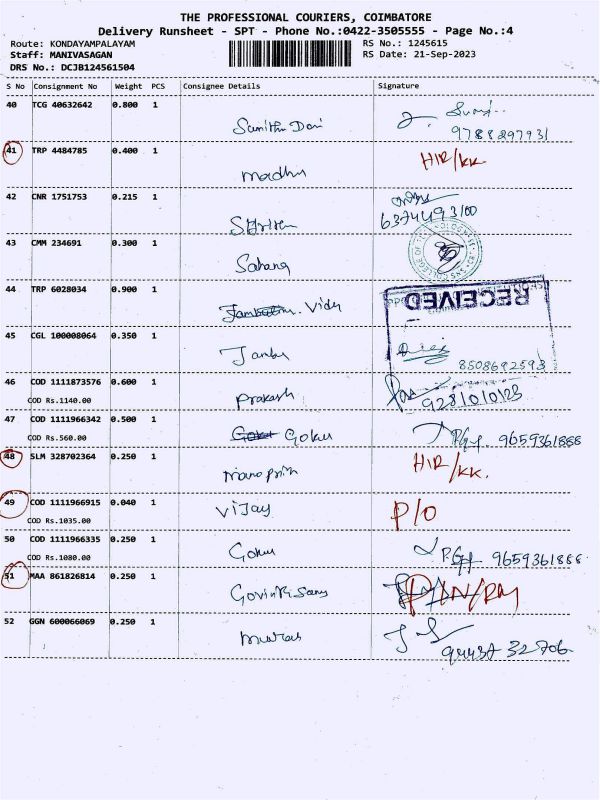 THE PROFESSIONAL COURIERS, COIMBATORE
Delivery Runsheet - SPT - Phone No.:0422-3505555 - Page No.:4
Route: KONDAYAMPALAYAM RS No.: 1245615
Staff: MANIVASAGAN RS Date: 21-Sep-2023
DRS No.: DCJB124561504
S No Consignment No Weight PCS Consignee Details Signature
40 TCG 40632642 0.800 1
9788297931
41 TRP 4484785 0.400 1 HIR/KK.
Madhu
42 CNR 1751753 0.215 1
6374493100
43 CMM 234691 0.300 1
Sahana
44 TRP 6028034 0.900 1 Vidy
RECEIVED
45 CGL 100008064 0.350 1
Janbu 8508692593
46 COD 1111873576 0.600 1
COD Rs.1140.00 Prakash 9281010123
47 COD 1111966342 0.500 1
COD Rs.560.00 Goku 9659361888
48 SLM 328702364 0.250 1 HIR/KK.
49 COD 1111966915 0.040 1 Vijay P/O
COD Rs.1035.00
50 COD 1111966335 0.250 1
COD Rs.1080.00 Goku 9659361888
51 MAA 861826814 0.250 1
52 GGN 600066069 0.250 1